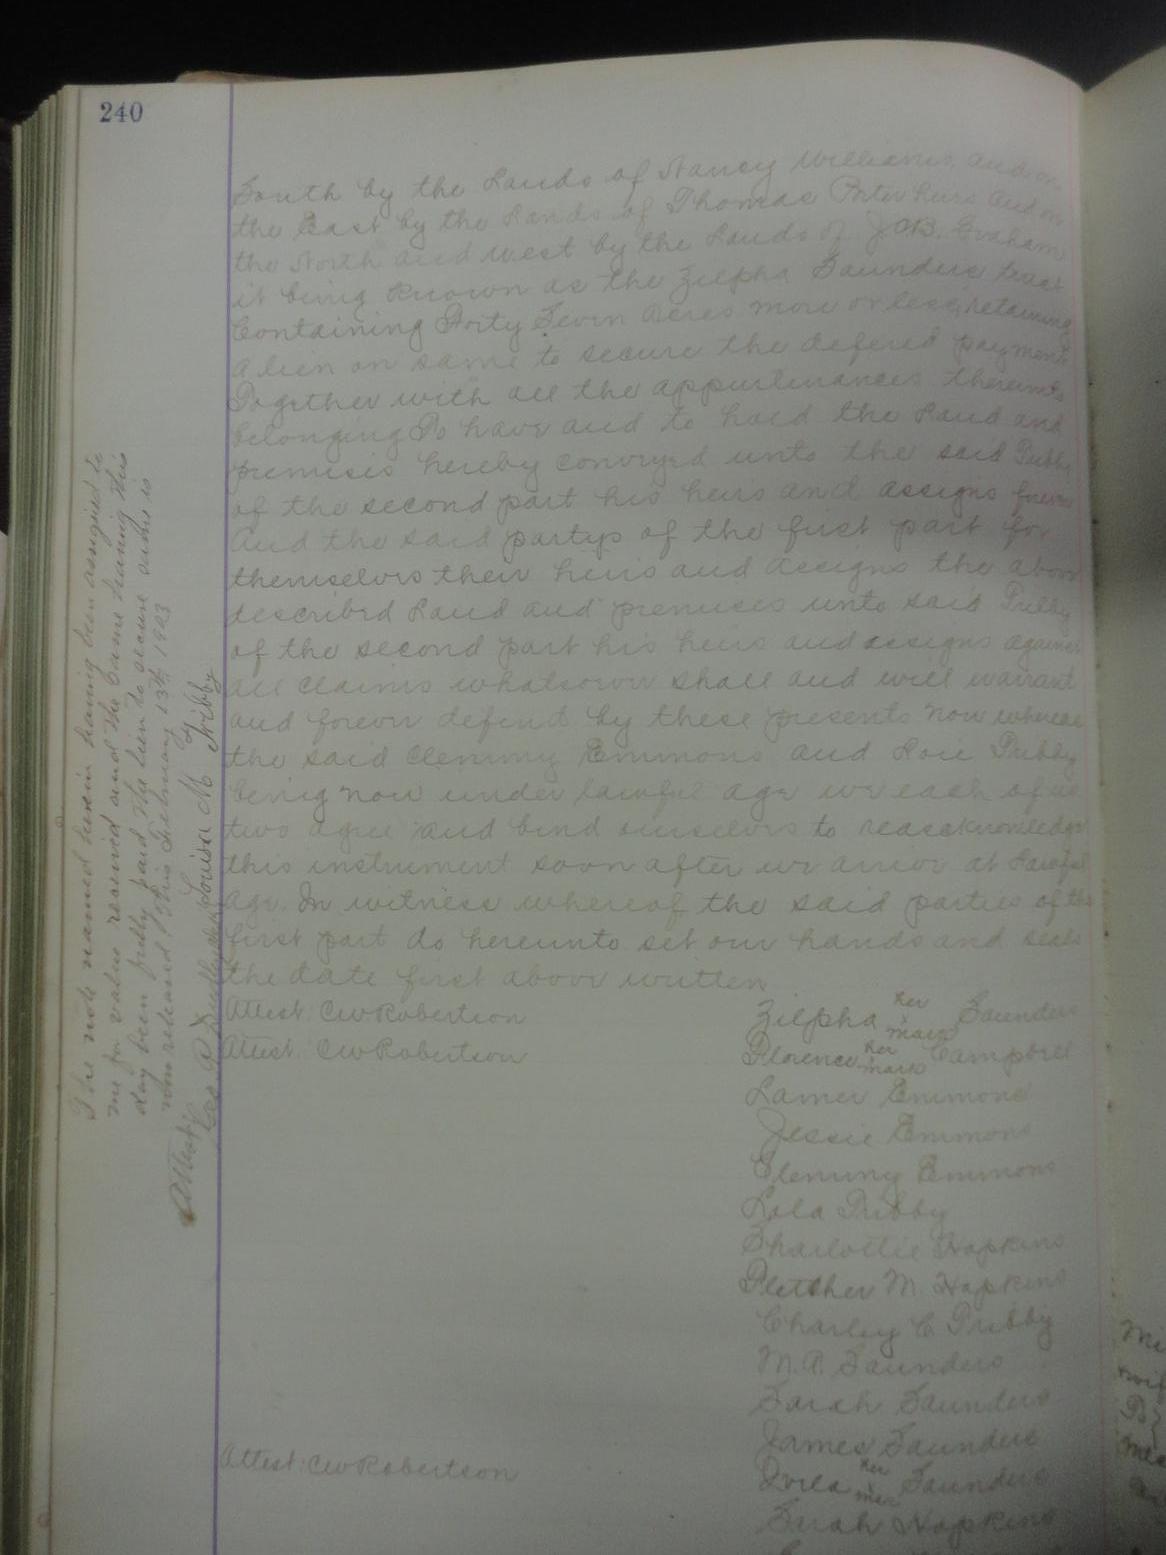 240
South by the Lands of Nancy Williams. and on
the East by the Lands of Thomas Porter heirs and on
the North and west by the Lands of J.B. Graham
it being Known as the Zilpha Saunders tract
Containing Forty Seven Acres more or less, retaining
a lien on same to secure the defered payments
Together with all the appurtenances thereunto
belonging To have and to hold the Land and
premises hereby conveyed unto the said Tribby
of the second part his heirs and assigns forever
And the said partys of the first part for
themselves their heirs and assigns the above
described Land and premises unto said Tribby
of the second part his heirs and assigns against
all claims whatsoever shall and will warrant
and forever defend by these presents Now whereas
the said Clemmy Emmons and Tribby
being now under lawful age we each of us
two agree and bind ourselves to reacknowledge
this instrument soon after we arive at Lawful
age. In witness whereof the said parties of the
first part do hereunto set our hands and seals
the date first above written
Attest: CW Robertson Zilpha her x mark Saunders
Attest: CW Robertson Florence her x mark Campbell
Lamer Emmons
Jessie Emmons
Clemmy Emmons
Lola Tribby
Charlottie Hopkins
Fletcher M. Hopkins
Charley C Tribby
M.A. Saunders
Sarah Saunders
James Saunders
Attest: CW Robertson her x mark Saunders
Sarah Hopkins
The note named herein having been assigned to
me for value received and the same having this
day been fully paid The lien to secure same is
now released. This February 13th 1903
Louisa M Tribby
Attest